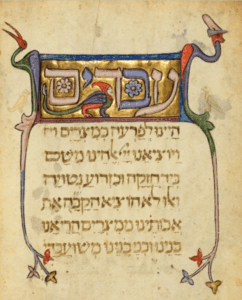 עבדים
היינו לפרעה במצרים ויו
ויוציאנו ייי אלהינו משם
ביד חזקה ובזרוע נטויה
ואלו לא הוציא הקבה את
אבותינו ממצרים הרי אנו
ובנינו ובני בנינו משועבדי